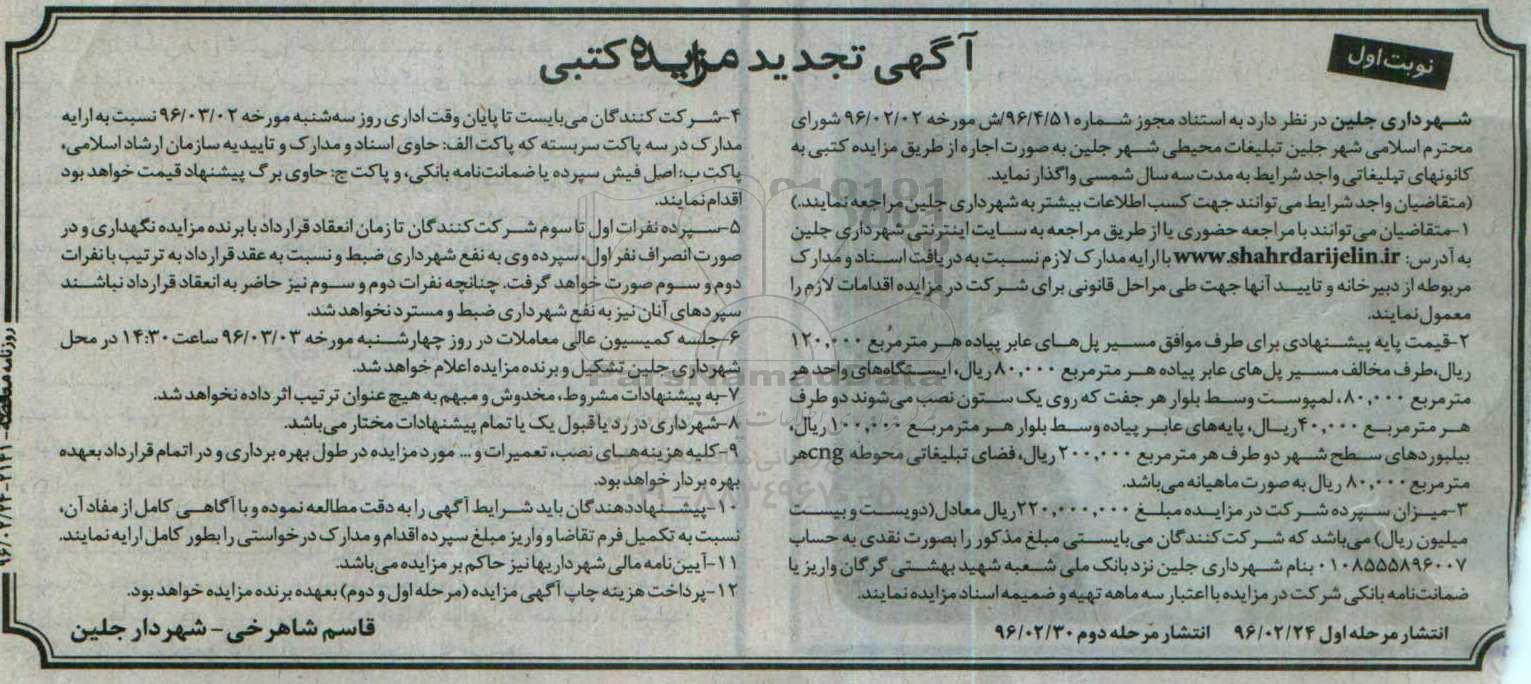 نوبت اول
آگهی تجدید مزایده کتبی
شهرداری جلین در نظر دارد به استناد مجوز شماره ۹۶/۴/۵۱/ش مورخه ۹۶/۰۲/۰۲ شورای
محترم اسلامی شهر جلین تبلیغات محیطی شهر جلین به صورت اجاره از طریق مزایده کتبی به
کانونهای تبلیغاتی واجد شرایط به مدت سه سال شمسی واگذار نماید.
(متقاضیان واجد شرایط می توانند جهت کسب اطلاعات بیشتر به شهرداری جلین مراجعه نمایند.)
۱-متقاضیان می توانند با مراجعه حضوری یا از طریق مراجعه به سایت اینترنتی شهرداری جلین
به آدرس: www.shahrdarijelin.ir با ارایه مدارک لازم نسبت به دریافت اسناد و مدارک
مربوطه از دبیرخانه و تایید آنها جهت طی مراحل قانونی برای شرکت در مزایده اقدامات لازم را
معمول نمایند.
۲-قیمت پایه پیشنهادی برای طرف موافق مسیر پل های عابر پیاده هر مترمربع ۱۲۰,۰۰۰
ریال،طرف مخالف مسیر پل های عابر پیاده هر مترمربع ۸۰,۰۰۰ ریال، ایستگاه های واحد هر
مترمربع ۸۰,۰۰۰، لمپوست وسط بلوار هر جفت که روی یک ستون نصب می شوند دو طرف
هر مترمربع ۴۰,۰۰۰ ریال، پایه های عابر پیاده وسط بلوار هر مترمربع ۱۰۰,۰۰۰ ریال،
بیلبوردهای سطح شهر دو طرف هر مترمربع ۲۰۰,۰۰۰ ریال، فضای تبلیغاتی محوطه cng هر
مترمربع ۸۰,۰۰۰ ریال به صورت ماهیانه می باشد.
۳-میزان سپرده شرکت در مزایده مبلغ ۲۲۰,۰۰۰,۰۰۰ ریال معادل(دویست و بیست
میلیون ریال) می باشد که شرکت کنندگان می بایستی مبلغ مذکور را بصورت نقدی به حساب
۰۱۰۸۵۵۵۸۹۶۰۰۷ بنام شهرداری جلین نزد بانک ملی شعبه شهید بهشتی گرگان واریز یا
ضمانت نامه بانکی شرکت در مزایده با اعتبار سه ماهه تهیه و ضمیمه اسناد مزایده نمایند.
انتشار مرحله اول ۹۶/۰۲/۲۴ انتشار مرحله دوم ۹۶/۰۲/۳۰
۴-شرکت کنندگان می بایست تا پایان وقت اداری روز سه شنبه مورخه ۹۶/۰۳/۰۲ نسبت به ارایه
مدارک در سه پاکت سربسته که پاکت الف: حاوی اسناد و مدارک و تاییدیه سازمان ارشاد اسلامی،
پاکت ب: اصل فیش سپرده یا ضمانت نامه بانکی، و پاکت ج: حاوی برگ پیشنهاد قیمت خواهد بود
اقدام نمایند.
۵-سپرده نفرات اول تا سوم شرکت کنندگان تا زمان انعقاد قرارداد با برنده مزایده نگهداری و در
صورت انصراف نفر اول، سپرده وی به نفع شهرداری ضبط و نسبت به عقد قرارداد به ترتیب با نفرات
دوم و سوم صورت خواهد گرفت. چنانچه نفرات دوم و سوم نیز حاضر به انعقاد قرارداد نباشند
سپردهای آنان نیز به نفع شهرداری ضبط و مسترد نخواهد شد.
۶-جلسه کمیسیون عالی معاملات در روز چهارشنبه مورخه ۹۶/۰۳/۰۳ ساعت ۱۴:۳۰ در محل
شهرداری جلین تشکیل و برنده مزایده اعلام خواهد شد.
۷-به پیشنهادات مشروط، مخدوش و مبهم به هیچ عنوان ترتیب اثر داده نخواهد شد.
۸-شهرداری در رد یا قبول یک یا تمام پیشنهادات مختار می باشد.
۹-کلیه هزینه های نصب، تعمیرات و... مورد مزایده در طول بهره برداری و در اتمام قرارداد بعهده
بهره بردار خواهد بود.
۱۰-پیشنهاددهندگان باید شرایط آگهی را به دقت مطالعه نموده و با آگاهی کامل از مفاد آن،
نسبت به تکمیل فرم تقاضا و واریز مبلغ سپرده اقدام و مدارک درخواستی را بطور کامل ارایه نمایند.
۱۱-آیین نامه مالی شهرداریها نیز حاکم بر مزایده می باشد.
۱۲-پرداخت هزینه چاپ آگهی مزایده (مرحله اول و دوم) بعهده برنده مزایده خواهد بود.
قاسم شاهرخی - شهردار جلین
ParsNamadData